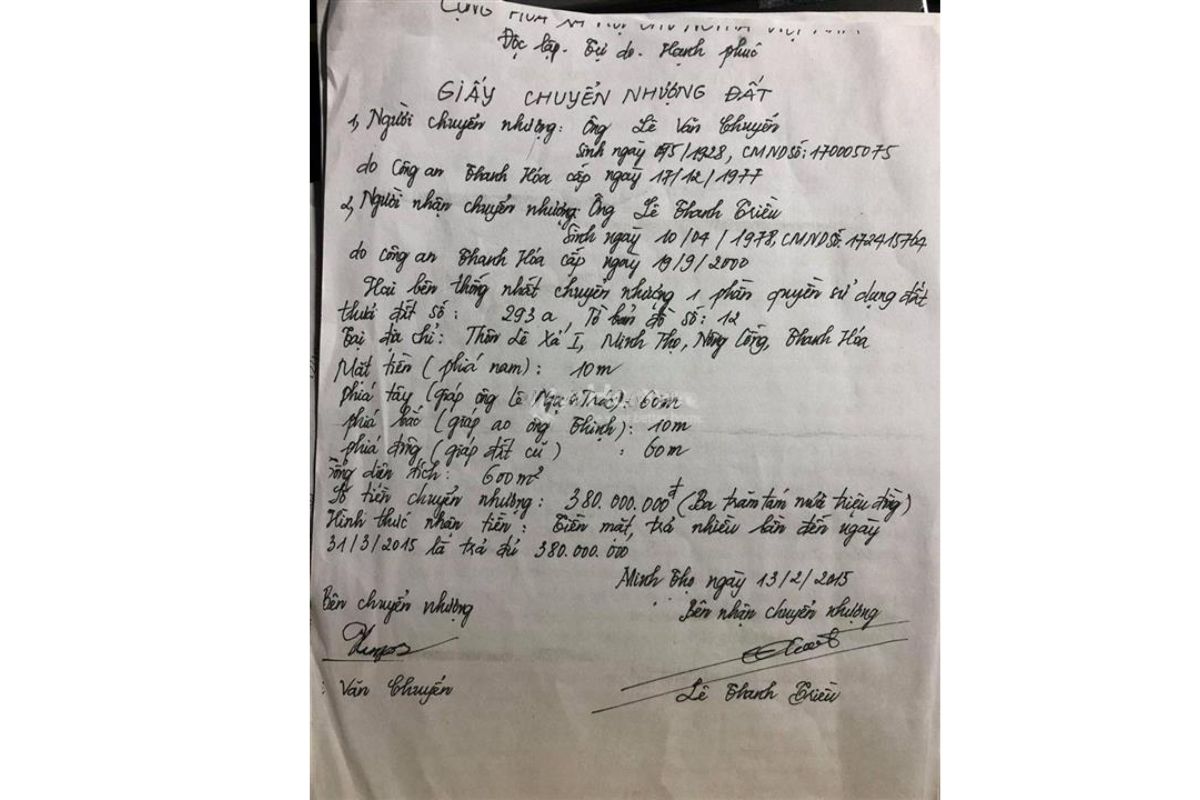 CỘNG HÒA XÃ HỘI CHỦ NGHĨA VIỆT NAM
Độc lập - Tự do - Hạnh phúc
GIẤY CHUYỂN NHƯỢNG ĐẤT
1, Người chuyển nhượng: Ông Lê Văn Chuyến
Sinh ngày /1928, CMND Số: 170005075
do Công an Thanh Hóa cấp ngày 17/12/1977
2, Người nhận chuyển nhượng: Ông Lê Thanh Triều
Sinh ngày 10/04/1978, CMND Số: 172415764
do công an Thanh Hóa cấp ngày 19/9/2000
Hai bên thống nhất chuyển nhượng 1 phần quyền sử dụng đất
thửa đất số: 293a, Tờ bản đồ số: 12
Tại địa chỉ: Thôn Lê Xá I, Minh Thọ, Nông Cống, Thanh Hóa
Mặt tiền (phía nam): 10m
phía tây (giáp ông Lê Ngọc): 60m
phía bắc (giáp ao ông Thịnh): 10m
phía đông (giáp đất cũ) : 60m
Tổng diện tích: 600m²
Số tiền chuyển nhượng: 380.000.000đ (Ba trăm tám mươi triệu đồng)
Hình thức nhận tiền: Tiền mặt, trả nhiều lần đến ngày
31/3/2015 là trả đủ 380.000.000
Minh Thọ ngày 13/2/2015
Bên chuyển nhượng Bên nhận chuyển nhượng
Văn Chuyến Lê Thanh Triều